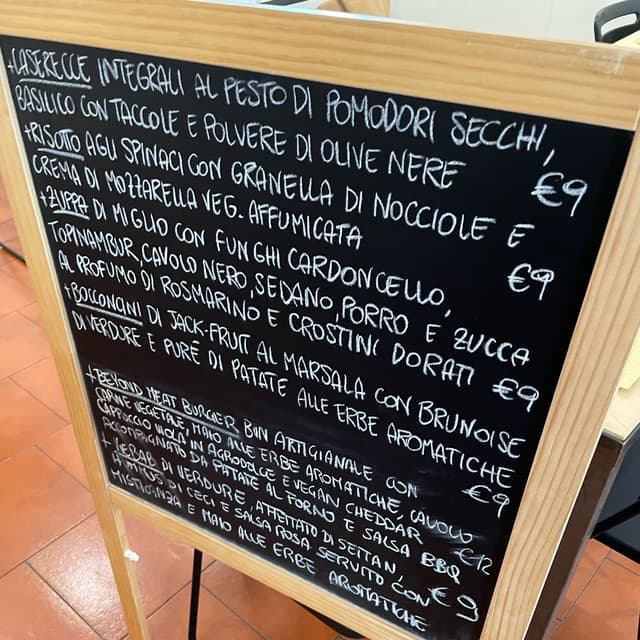 +CASERECCE INTEGRALI AL PESTO DI POMODORI SECCHI,
BASILICO CON TACCOLE E POLVERE DI OLIVE NERE €9
+RISOTTO AGLI SPINACI CON GRANELLA DI NOCCIOLE E
CREMA DI MOZZARELLA VEG. AFFUMICATA €9
+ZUPPA DI MIGLIO CON FUNGHI CARDONCELLO,
TOPINAMBUR, CAVOLO NERO, SEDANO, PORRO E ZUCCA
AL PROFUMO DI ROSMARINO E CROSTINI DORATI €9
+BOCCONCINI DI JACK-FRUIT AL MARSALA CON BRUNOISE
DI VERDURE E PURÉ DI PATATE ALLE ERBE AROMATICHE €9
+BEYOND MEAT BURGER BUN ARTIGIANALE CON
CARNE VEGETALE, MAIO ALLE ERBE AROMATICHE, CAVOLO
CAPPUCCIO VIOLA IN AGRODOLCE E VEGAN CHEDDAR
ACCOMPAGNATO DA PATATE AL FORNO E SALSA BBQ €12
+ KEBAB DI VERDURE, AFFETTATO DI SEITAN,
HUMMUS DI CECI E SALSA ROSA SERVITO CON
MISTICANZA E MAIO ALLE ERBE AROMATICHE €9